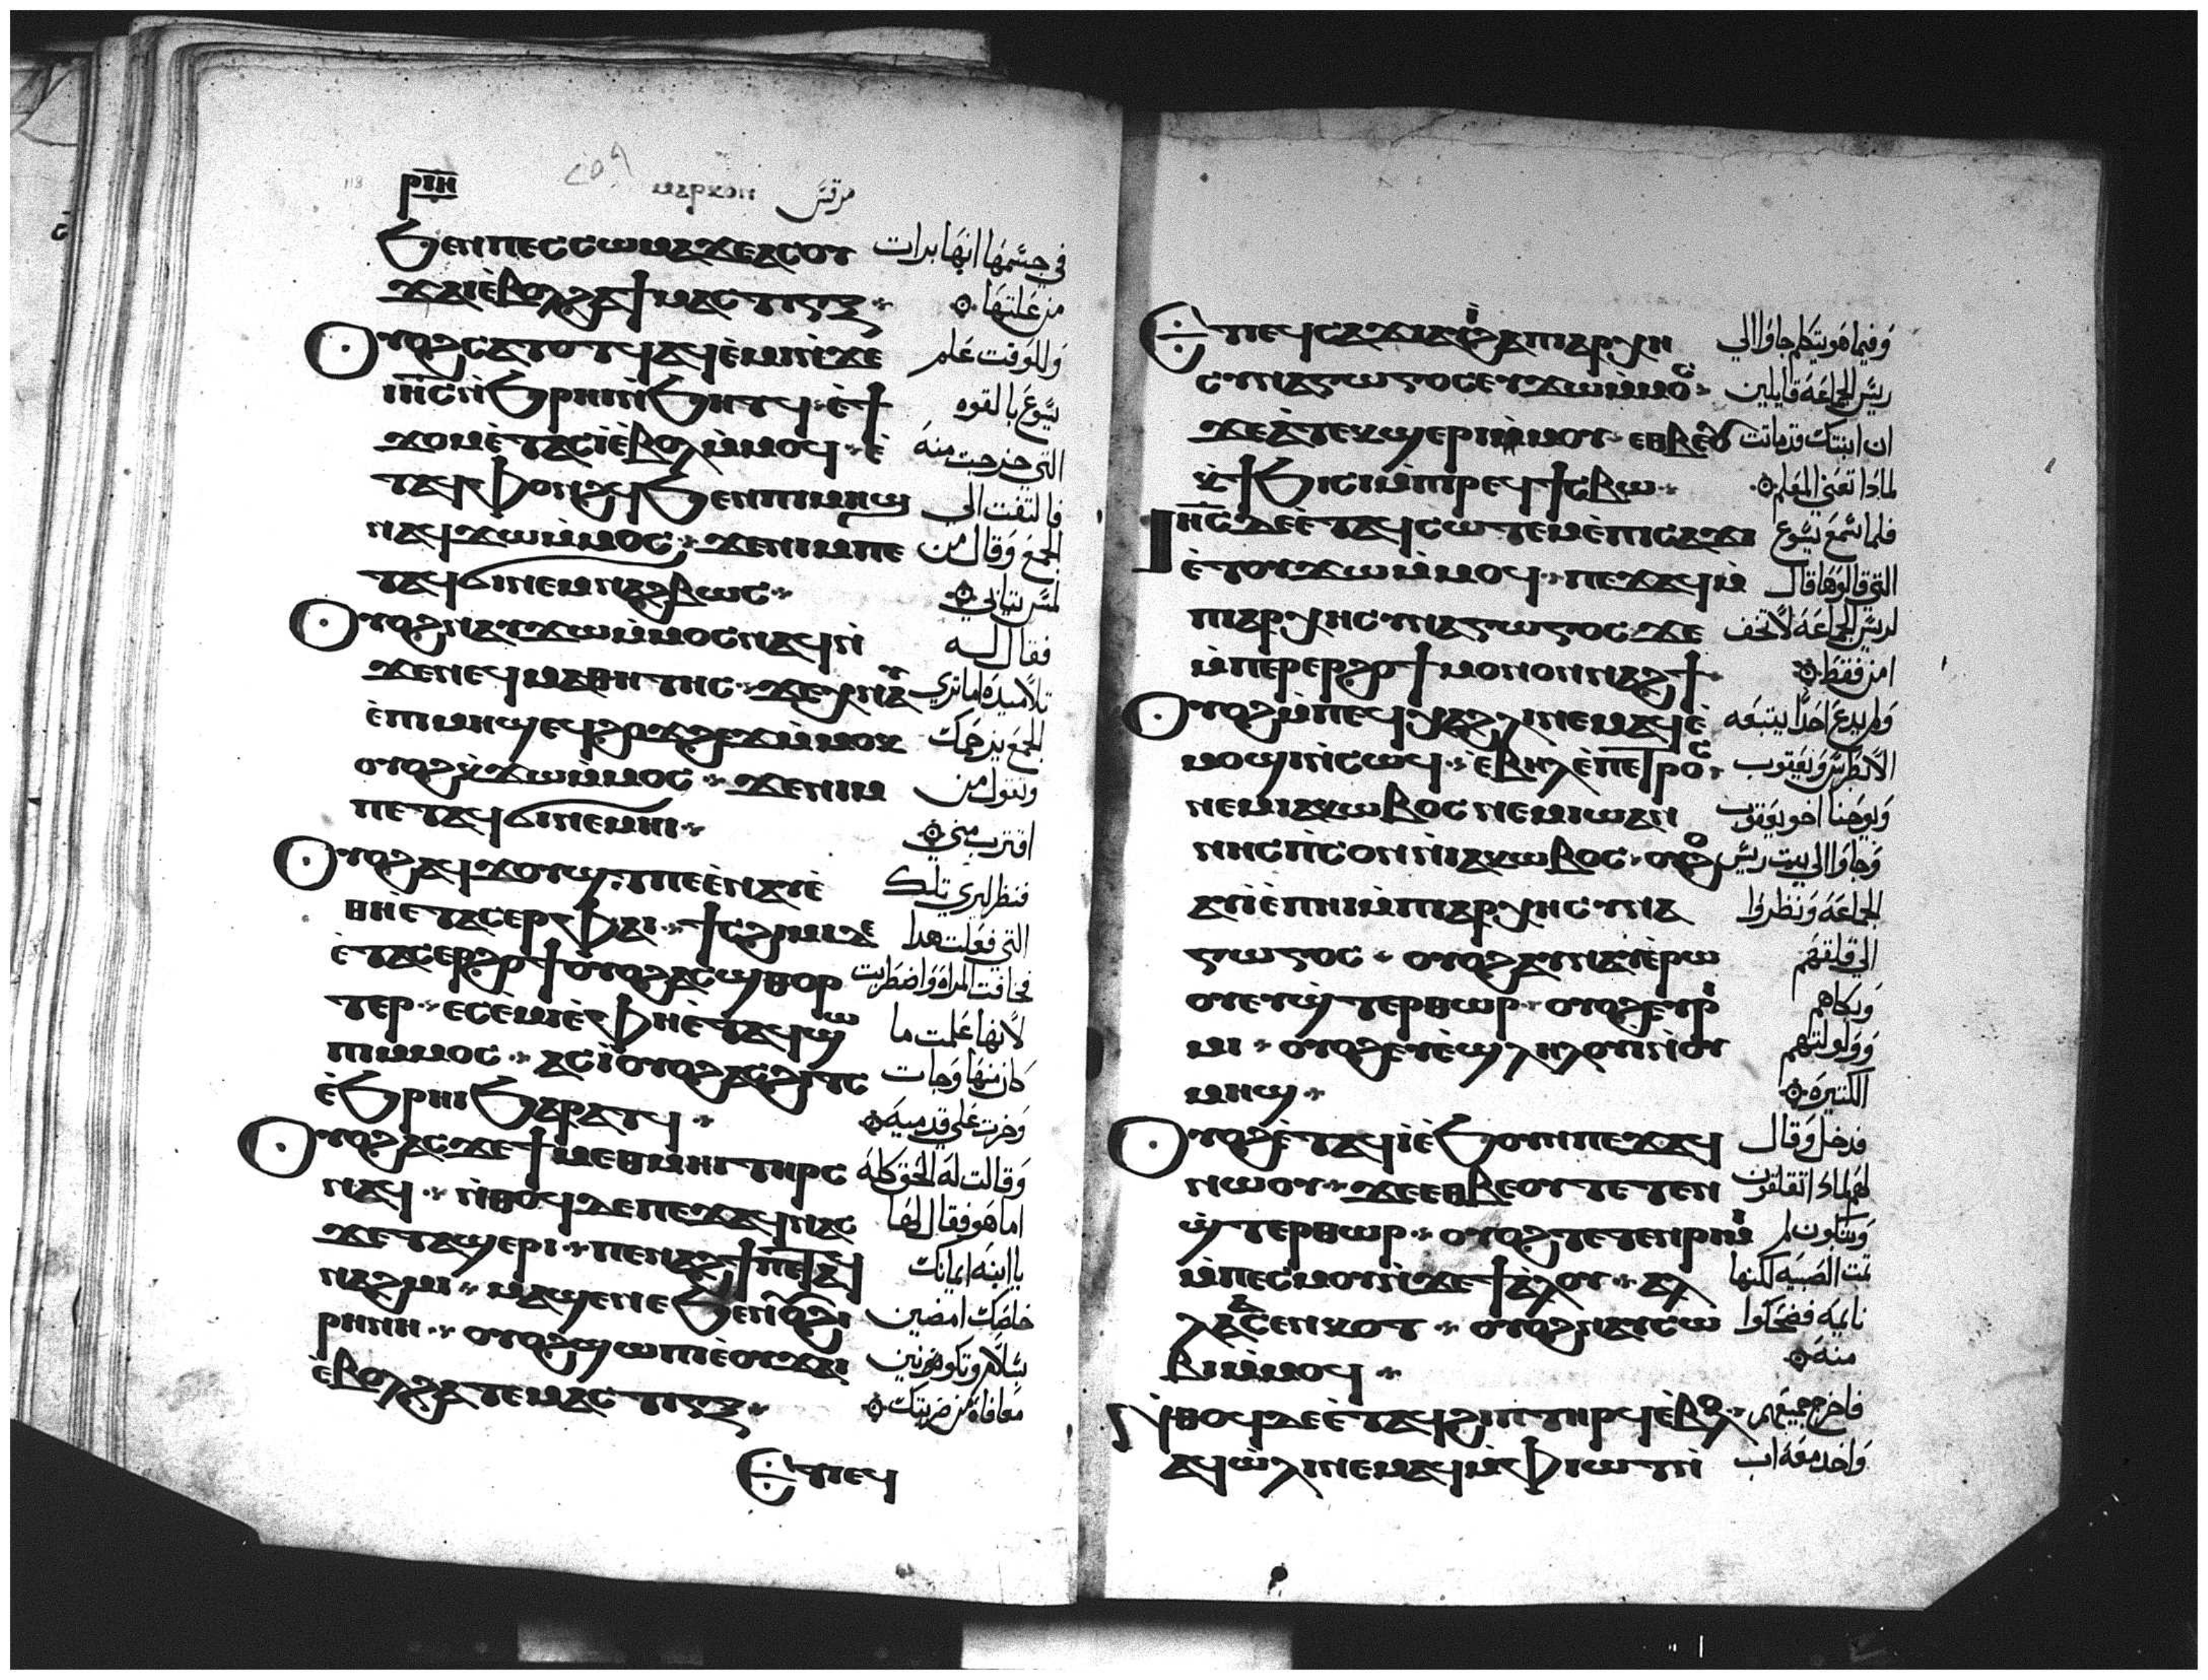 ⲣⲓⲏ ⲙⲁⲣⲕⲟⲛ مرقس
ϧⲉⲛⲡⲉⲥⲥⲱⲙⲁϫⲉⲁⲥⲟⲩ في جسمها انها برات
ϫⲁⲓⲉ̀ⲃⲟⲗϩⲁϯⲙⲁⲥⲧⲓⲅⲝ من علتها
ⲟⲩⲟϩⲥⲁⲧⲟⲧϥⲁϥⲉ̀ⲙⲓⲛ̀ϫⲉ وللوقت علم
ⲓⲏⲥⲛ̀ϧⲣⲏⲓⲛ̀ϧⲏⲧϥ ⲉ̀ϯ يسوع بالقوه
ϫⲟⲙⲉ̀ⲧⲁⲥⲓ̀ⲉ̀ⲃⲟⲗⲙ̀ⲙⲟϥ ⲉ̀ التي خرجت منه
ⲧⲁϥⲫⲟⲛϩϥϧⲉⲛⲡⲓⲙⲏϣ فالتفت الي
ⲛⲁϥϫⲱⲙ̀ⲙⲟⲥ ϫⲉⲛⲓⲙⲡⲉ الجمع وقال من
ⲧⲁϥϭⲓⲛⲉⲙⲛⲁϩⲃⲱⲥ لمس ثيابي
ⲟⲩⲟϩⲛⲁⲩϫⲱⲙ̀ⲙⲟⲥⲛⲁϥⲛ̀ فقال له
ϫⲉⲛⲉϥⲙⲁⲑⲏⲧⲏⲥ ϫⲉⲭⲛⲁⲩ تلاميده اما تري
ⲉ̀ⲡⲓⲙⲏϣⲉϥϩⲟϫϩⲉϫⲙ̀ⲙⲟⲕ الجمع يزحمك
ⲟⲩⲟϩⲕ̀ϫⲱⲙ̀ⲙⲟⲥ ϫⲉⲛⲓⲙ وتقول من
ⲡⲉⲧⲁϥϭⲓⲛⲉⲙⲏⲓ اقترب مني
ⲟⲩⲟϩⲁϥϫⲟⲩϣⲧⲡⲉⲉ̀ⲛⲁⲩⲉ̀ فنظر ليري تلك
ⲑⲏⲉ̀ⲧⲁⲥⲉⲣⲫⲁⲓ ϯⲥϩⲓⲙⲓⲇⲉ التي فعلت هدا
ⲉ̀ⲧⲁⲥⲉⲣϩⲟϯⲟⲩⲟϩⲁⲥϣⲑⲟⲣ فخافت المراه واضطربت
ⲧⲉⲣ ⲉⲥⲉ̀ⲙⲓⲉ̀ⲫⲏⲉ̀ⲧⲁϥϣⲱ لانها علمت ما
ⲡⲓⲙ̀ⲙⲟⲥ ⲁⲥⲓ̀ⲟⲩⲟϩⲁⲥϩⲓⲧⲥ كان منها وجات
ⲉ̀ϧⲣⲏⲓϧⲁⲣⲁⲧϥ وخرت علي قدميه
ⲟⲩⲟϩⲁⲥϫⲉϯⲙⲉⲑⲙⲏⲓⲧⲏⲣⲥ وقالت له الحق كله
ⲛⲁϥ ⲛ̀ⲑⲟϥⲇⲉⲡⲉϫⲁϥⲛⲁⲥ اما هو فقال لها
ϫⲉⲧⲁϣⲉⲣⲓ ⲡⲉⲛⲁϩϯⲡⲉⲧⲁϥ يا ابنه ايمانك
ⲛⲁϩⲙⲓ ⲙⲁϣⲉⲛⲉϧⲉⲛⲟⲩϩⲓ خلصك امضين
ⲣⲏⲛⲏ ⲟⲩⲟϩϣⲱⲡⲓⲉ̀ⲟⲩϫⲁⲓ بسلام وتكونين
ⲉ̀ⲃⲟⲗϩⲁⲧⲉⲙⲁⲥⲧⲓⲅⲝ معافاه من ضربتك
ⲉⲧⲓⲉϥ
ⲉⲧⲓⲉϥⲥⲁϫⲓⲁⲩⲓ̀ϩⲁⲡⲓⲁⲣⲭⲏ وفيما هو يتكلم جاوا الي
ⲥⲩⲛⲁⲅⲱⲅⲟⲥⲉⲩϫⲱⲙ̀ⲙⲟⲥ ريس الجماعه قايلين
ϫⲉⲁ̀ⲧⲉⲕϣⲉⲣⲓⲙⲟⲩ ⲉⲑⲃⲉⲟⲩ ان ابنتك قد ماتت
ⲕ̀ϯϧⲓⲥⲓⲙ̀ⲡⲓⲣⲉϥϯⲥⲃⲱ لمادا تعني المعلم
ⲓⲏⲥⲇⲉⲉ̀ⲧⲁϥⲥⲱⲧⲉⲙⲉ̀ⲡⲓⲥⲁϫⲓ فلما سمع يسوع
ⲉ̀ⲧⲟⲩϫⲱⲙ̀ⲙⲟϥ ⲡⲉϫⲁϥⲙ̀ التي قالوها قال
ⲡⲓⲁⲣⲭⲏⲥⲩⲛⲁⲅⲱⲅⲟⲥ ϫⲉ لريس الجماعه لا تخف
ⲙ̀ⲡⲉⲣⲉⲣϩⲟϯⲙⲟⲛⲟⲛⲛⲁϩϯ امن فقط
ⲟⲩⲟϩⲙ̀ⲡⲉϥⲭⲁϩⲗⲓⲛⲉⲙⲁϥⲉ̀ ولم يدع احدا يتبعه
ⲙⲟϣⲓⲛ̀ⲥⲱϥ ⲉ̀ⲃⲏⲗⲉ̀ⲡⲉⲧⲣⲟⲥ الا بطرس ويعقوب
ⲛⲉⲙⲓⲁⲕⲱⲃⲟⲥⲛⲉⲙⲓⲱⲁⲛ ويوحنا اخو يعقوب
ⲛⲏⲥⲡ̀ⲥⲟⲛⲛ̀ⲓⲁⲕⲱⲃⲟⲥ ⲟⲩⲟϩ وجاوا الي بيت ريس
ⲁⲩⲓ̀ⲉ̀ⲡⲏⲓⲙ̀ⲡⲓⲁⲣⲭⲏⲥⲩⲛⲁ الجماعه ونظروا
ⲅⲱⲅⲟⲥ ⲟⲩⲟϩⲁⲩⲛⲁⲩⲉ̀ⲣⲱ الي قلقهم
ⲟⲩⲉⲩϣ̀ⲧⲉⲣⲑⲱⲣ ⲟⲩⲟϩⲉⲩⲣⲓ وبكاهم
ⲙⲓ ⲟⲩⲟϩⲉⲩⲉ̀ϣⲗⲏⲗⲟⲩⲓⲛ̀ⲟⲩ وولولتهم
ⲙⲏϣ الكتيره
ⲟⲩⲟϩⲉ̀ⲧⲁϥⲓ̀ⲉ̀ϧⲟⲩⲛⲡⲉϫⲁϥ فدخل وقال
ⲛⲱⲟⲩ ϫⲉⲉⲑⲃⲉⲟⲩⲧⲉⲧⲉⲛ لهم لمادا تقلقون
ϣ̀ⲧⲉⲣⲑⲱⲣ ⲟⲩⲟϩⲧⲉⲧⲉⲛⲣⲓⲙⲓ وتبكون لم
ⲙ̀ⲡⲉⲥⲙⲟⲩⲛ̀ϫⲉϯⲁ̀ⲗⲟⲩ ⲁⲗ تمت الصبيه لكنها
ⲗⲁⲁⲥⲉⲛⲕⲟⲧ ⲟⲩⲟϩⲛⲁⲩⲥⲱ نايمه فضحكوا
ⲃⲓⲙ̀ⲙⲟϥ منه
ⲛ̀ⲑⲟϥⲇⲉⲉ̀ⲧⲁϥϩⲓⲟⲩⲓⲧⲏⲣϥⲉ̀ⲃⲟⲗ فاخرج جميعهم
ⲁϥⲱ̀ⲗⲓⲛⲉⲙⲁϥⲙ̀ⲫⲓⲱⲧⲛ̀ واخد معه اب